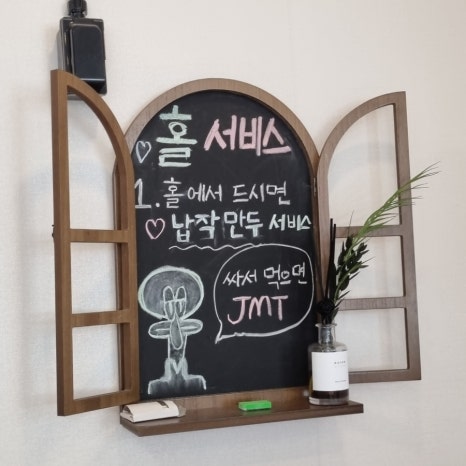 ♡홀 서비스
1. 홀에서 드시면
♡ 납작만두 서비스
싸서 먹으면
JMT